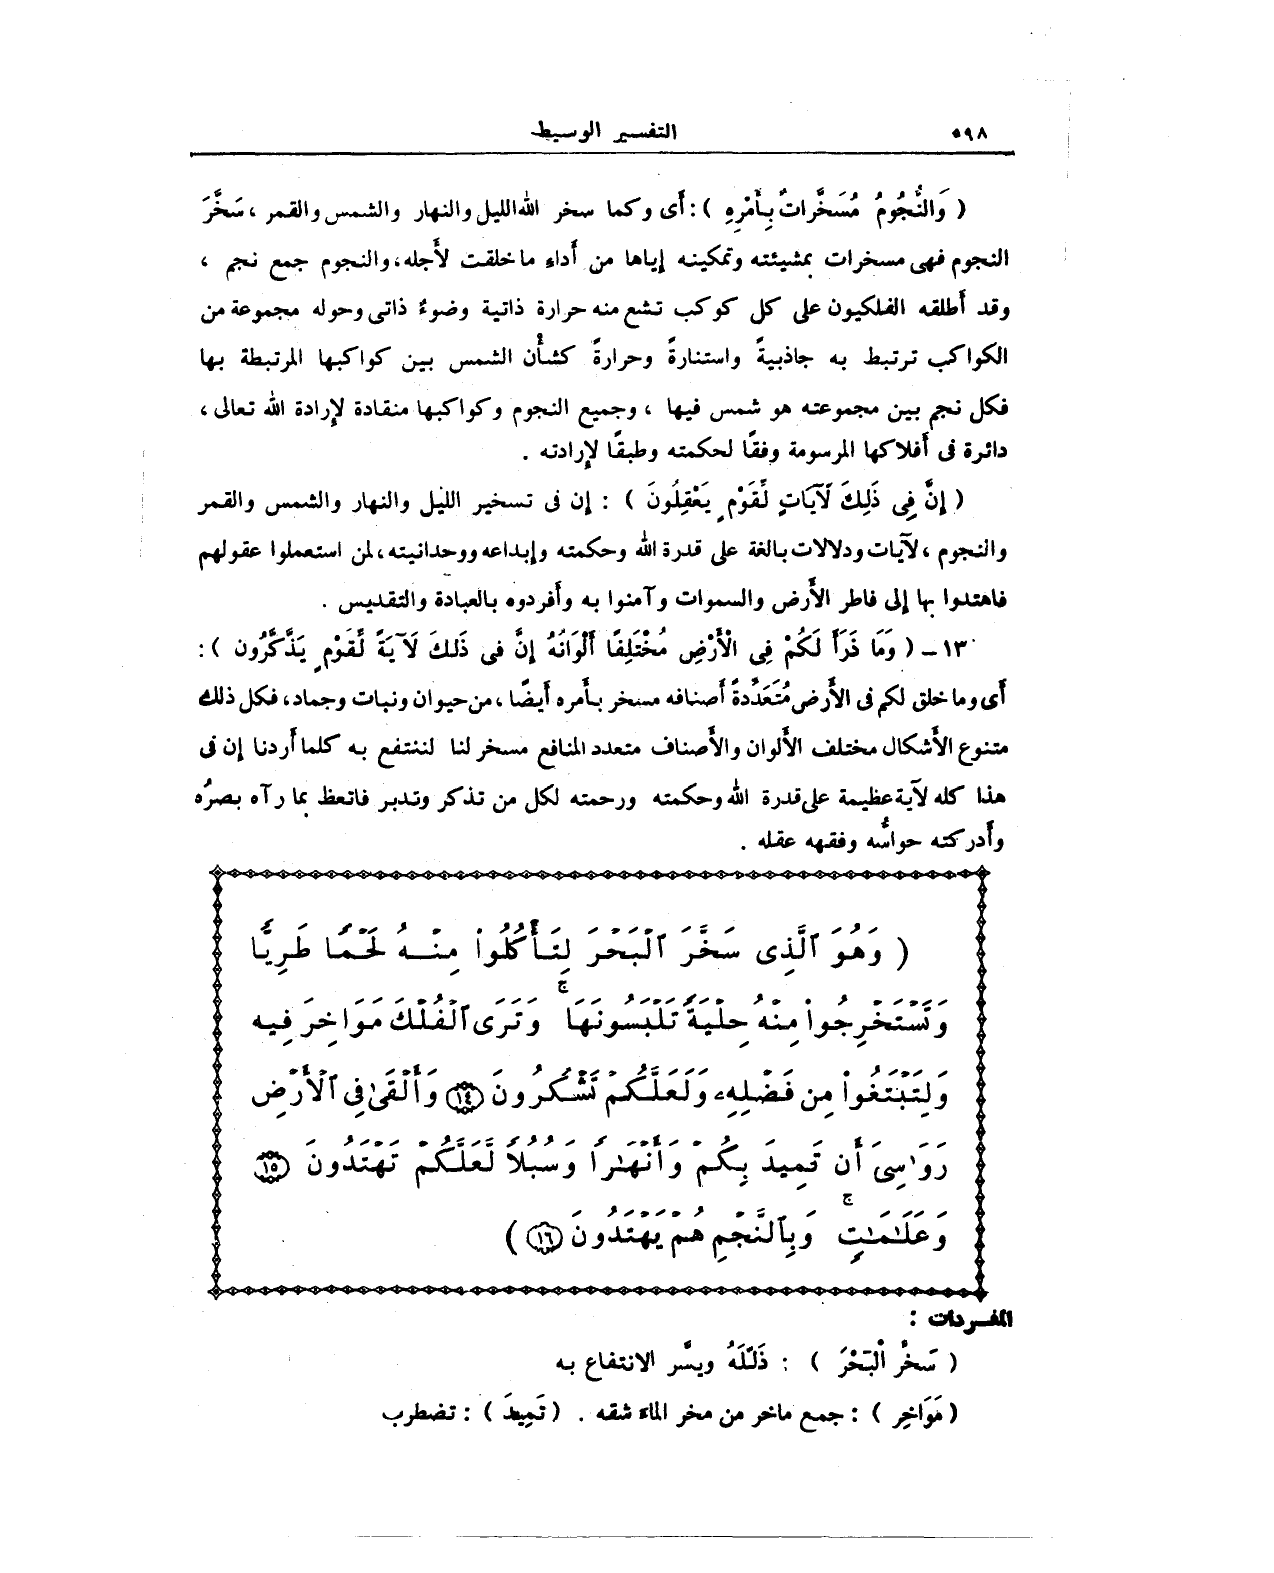 ٥٩٨ التفسير الوسيط
( وَالنُّجُومُ مُسَخَّرَاتٌ بِأَمْرِهِ ) : أى وكما سخر الله الليل والنهار والشمس والقمر ، سَخَّرَ
النجوم فهى مسخرات بمشيئته وتمكينه إياها من أداء ما خلقت لأجله، والنجوم جمع نجم ،
وقد أطلقه الفلكيون على كل كوكب تشع منه حرارة ذاتية وضوءٌ ذاتى وحوله مجموعة من
الكواكب ترتبط به جاذبيةً واستنارةً وحرارةً كشأن الشمس بين كواكبها المرتبطة بها
فكل نجم بين مجموعته هو شمس فيها ، وجميع النجوم وكواكبها منقادة لإرادة الله تعالى ،
دائرة فى أفلاكها المرسومة وفقًا لحكمته وطبقًا لإرادته .
( إِنَّ فِى ذَلِكَ لَآيَاتٍ لِّقَوْمٍ يَعْقِلُونَ ) : إن فى تسخير الليل والنهار والشمس والقمر
والنجوم ، لآيات ودلالات بالغة على قدرة الله وحكمته وإبداعه ووحدانيته ، لمن استعملوا عقولهم
فاهتدوا بها إلى فاطر الأرض والسموات وآمنوا به وأفردوه بالعبادة والتقديس .
١٣ - ( وَمَا ذَرَأَ لَكُمْ فِى الْأَرْضِ مُخْتَلِفًا أَلْوَانُهُ إِنَّ فى ذَلكَ لَآيَةً لِّقَوْمٍ يَذَّكَّرُون ) :
أى وما خلق لكم فى الأرض مُتَعَدِّدةً أصنافه مسخر بأمره أيضًا ، من حيوان ونبات وجماد، فكل ذلك
متنوع الأشكال مختلف الألوان والأصناف متعدد المنافع مسخر لنا لننتفع به كلما أردنا إن فى
هذا كله لآية عظيمة على قدرة الله وحكمته ورحمته لكل من تذكر وتدبر فاتعظ بما رآه بصرُه
وأدركته حواسُّه وفقهه عقله .
( وَهُوَ ٱلَّذِى سَخَّرَ ٱلْبَحْرَ لِتَأْكُلُواْ مِنْهُ لَحْمًا طَرِيًّا
وَتَسْتَخْرِجُواْ مِنْهُ حِلْيَةً تَلْبَسُونَهَا ۚ وَتَرَى ٱلْفُلْكَ مَوَاخِرَ فِيهِ
وَلِتَبْتَغُواْ مِن فَضْلِهِۦ وَلَعَلَّكُمْ تَشْكُرُونَ ﴿١٤﴾ وَأَلْقَىٰ فِى ٱلْأَرْضِ
رَوَٰسِىَ أَن تَمِيدَ بِكُمْ وَأَنْهَٰرًا وَسُبُلًا لَّعَلَّكُمْ تَهْتَدُونَ ﴿١٥﴾
وَعَلَٰمَٰتٍ ۚ وَبِٱلنَّجْمِ هُمْ يَهْتَدُونَ ﴿١٦﴾ )
المفـردات :
( سَخَّرَ الْبَحْرَ ) : ذَلَّلَهُ ويسَّر الانتفاع به
( مَوَاخِرَ ) : جمع ماخر من مخر الماء شقه . ( تَمِيدَ ) : تضطرب